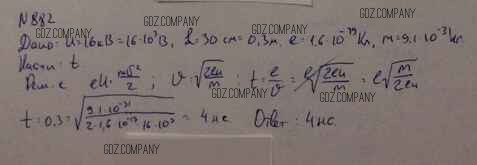 №882
GDZ.COMPANY
GDZ.COMPANY
GDZ.COMPANY
Дано: U=16кВ=16·10³В, ℓ=30 см=0,3м, e=1,6·10⁻¹⁹Кл, m=9,1·10⁻³¹кг.
GDZ.COMPANY
Найти: t
GDZ.COMPANY
eU= mυ²/2 ; υ=√(2eU/m) ; t= ℓ/υ = ℓ/√(2eU/m) = ℓ√(m/2eU)
GDZ.COMPANY
GDZ.COMPANY
t=0,3=√(9,1·10⁻³¹/2·1,6·10⁻¹⁹·16·10³) = 4нс Ответ: 4нс.
GDZ.COMPANY
GDZ.COMPANY